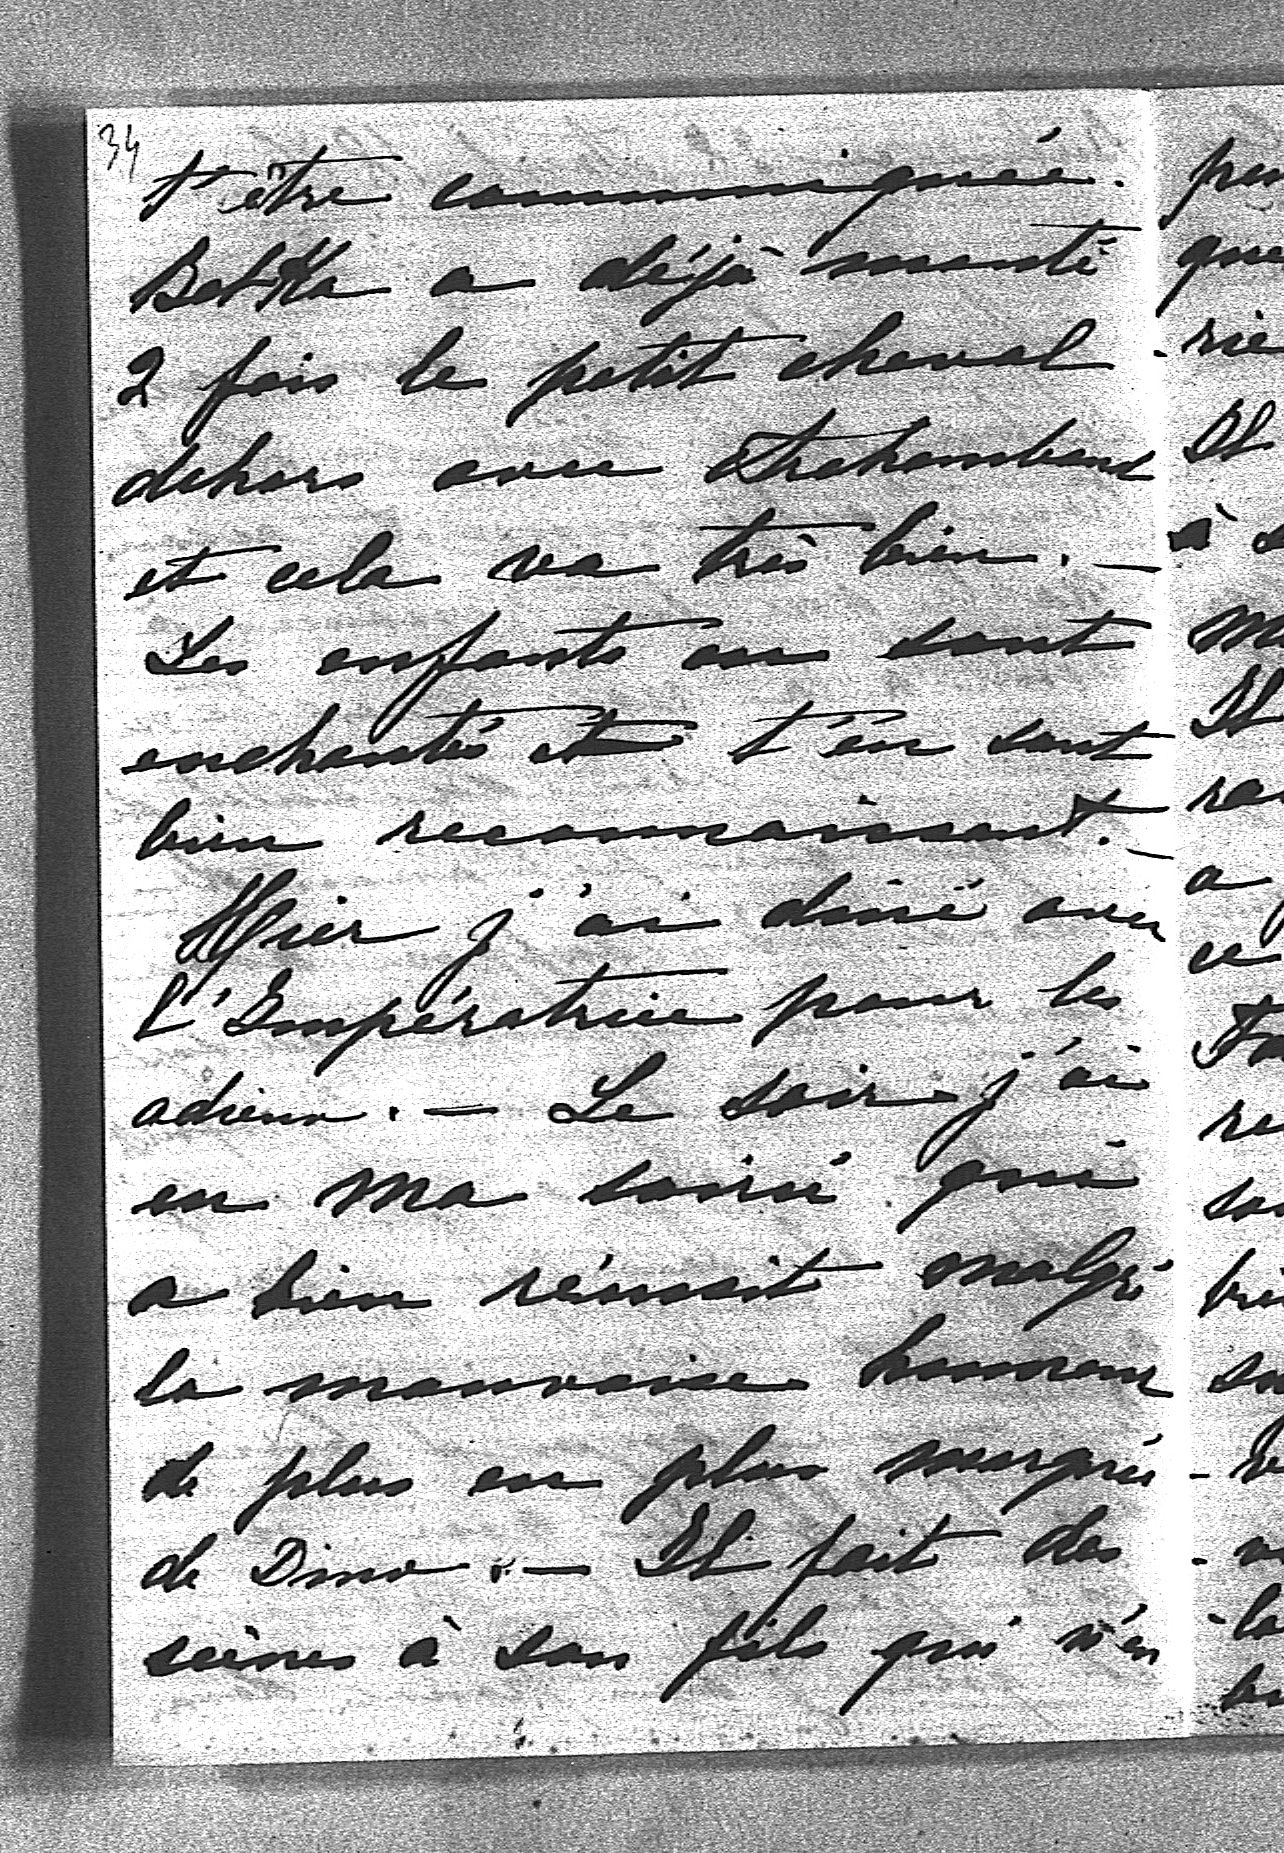 34
t'être communiquée.
Betka a déjà monté
2 fois le petit cheval
dehors avec
et cela va très bien. —
Les enfants en sont
enchantés et t'en sont
bien reconnaissant. —
Hier j'ai diné avec
l'Impératrice pour les
adieux. — Le soir j'ai
eu ma soirée qui
a bien réussit malgré
la mauvaise humeur
de plus en plus marquée
de Dino. — Il fait des
scènes à son fils qui n'en